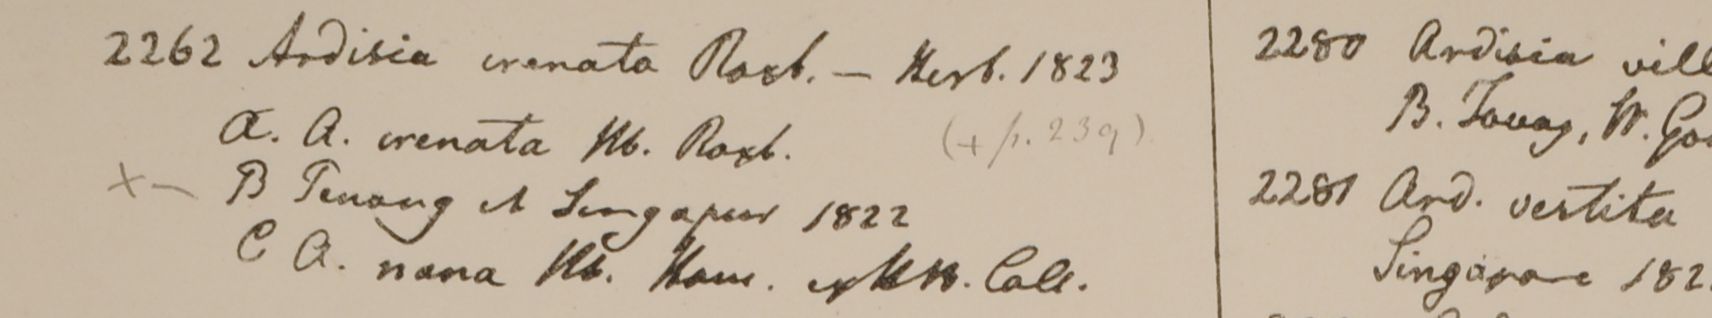 2262 Ardisia crenata Roxb. — Herb. 1823
A. A. crenata Hb. Roxb. (+ p. 239)
x — B Penang et Singapur 1822
C A. nana Hb. Ham. ex Hb. Calc.
2280 Ardisia vill
B. Tavoy, W. Go
2281 Ard. vestita
Singapore 182